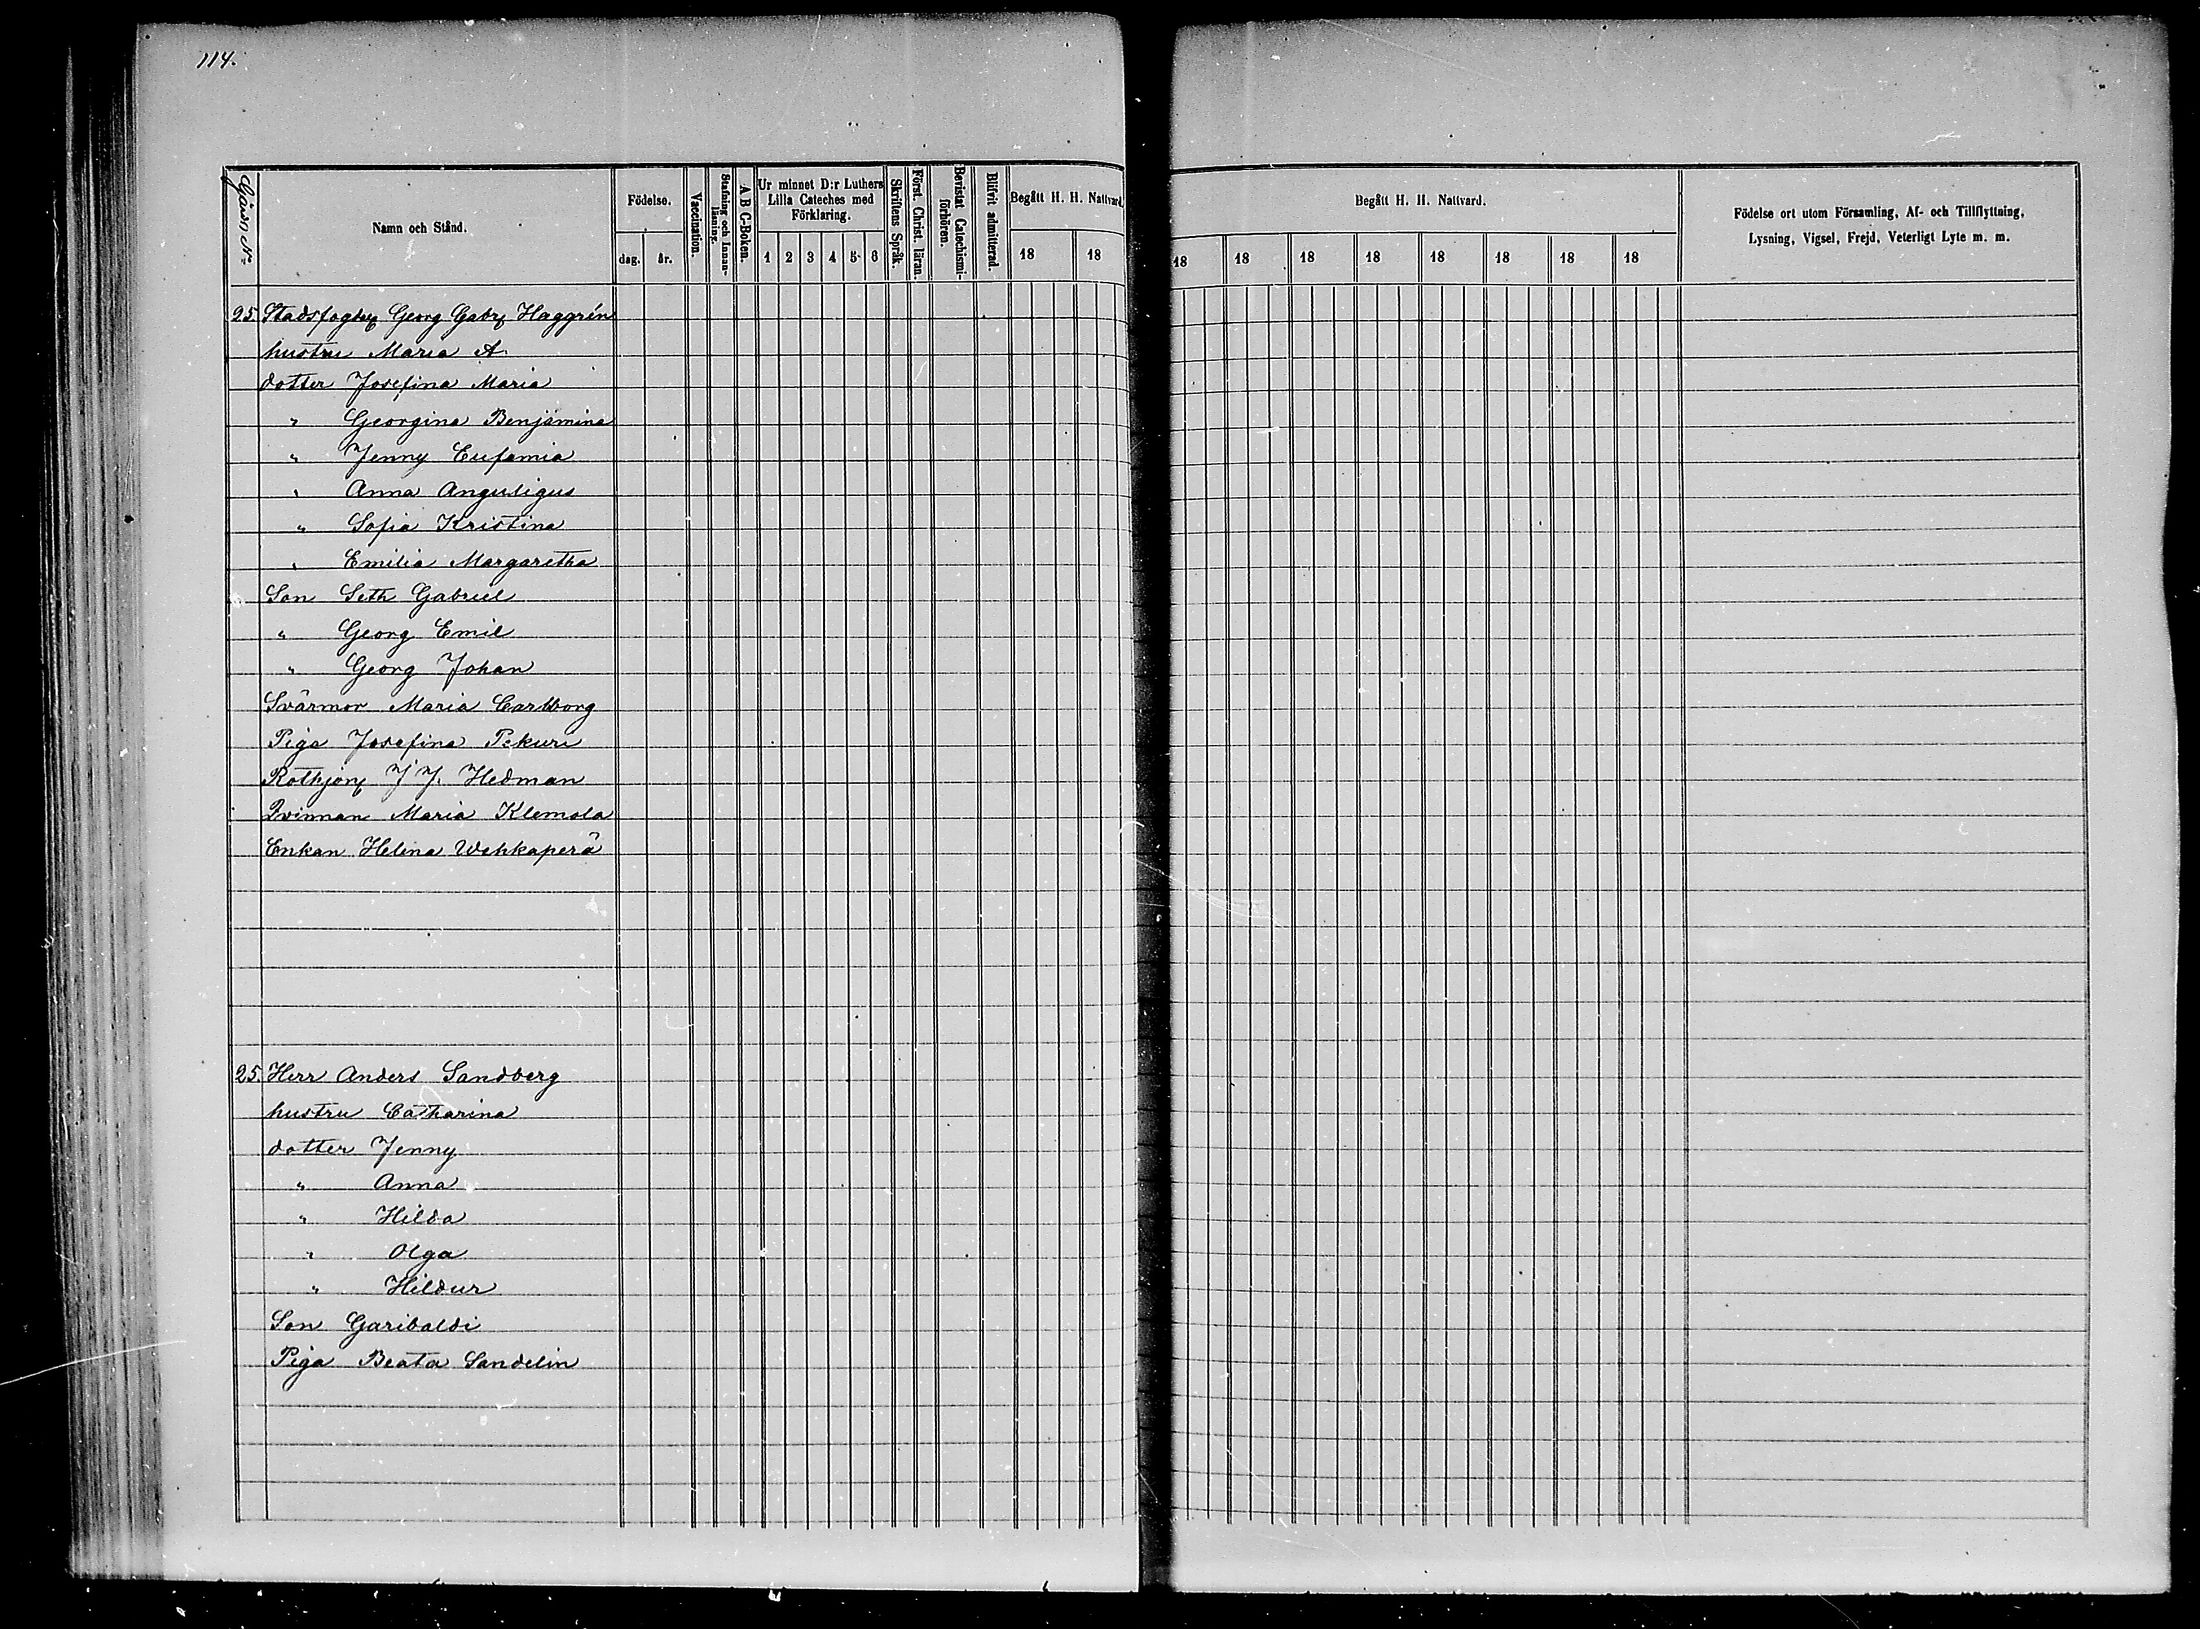 114.
Gård N:o
Namn och Stånd.
Födelse.
dag.
år.
Vaccination.
Stafning och Innan-
läsning.
A B C-Boken.
Ur minnet D:r Luthers
Lilla Cateches med
Förklaring.
1 2 3 4 5 6
Skriftens Språk.
Först. Christ. läran.
Bevistat Catechismi-
förhören.
Blifvit admitterad.
Begått H. H. Nattvard.
18 18
Begått H. H. Nattvard.
18 18 18 18 18 18 18 18
Födelse ort utom Församling, Af- och Tillflyttning,
Lysning, Vigsel, Frejd, Veterligt Lyte m. m.
25. Stadsfogden Georg Gabr Haggrén
hustru Maria A.
dotter Josefina Maria
" Georgina Benjamina
" Jenny Eufemia
" Anna
" Sofia Kristina
" Emilia Margaretha
Son Seth Gabriel
" Georg Emil
" Georg Johan
Svärmor Maria Carlborg
Piga Josefina Pekuri
J J. Hedman
Qvinnan Maria Klemola
Enkan Helena Wehkaperä
25. Herr Anders Sandberg
hustru Catharina
dotter Jenny
" Anna
" Hilda
" Olga
" Hildur
Son Garibaldi
Piga Beata Sandelin